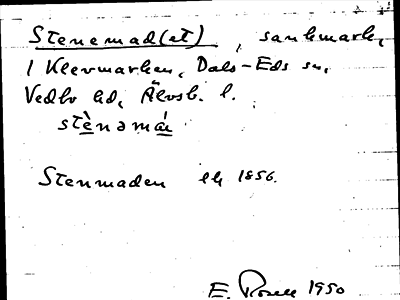 Stenemad(et), sankmark,
i Klevmarken, Dals-Eds sn,
Vedbo hd, Älvsb. l.
stènəmá
Stenmaden ek 1856.
E. Rosell 1950